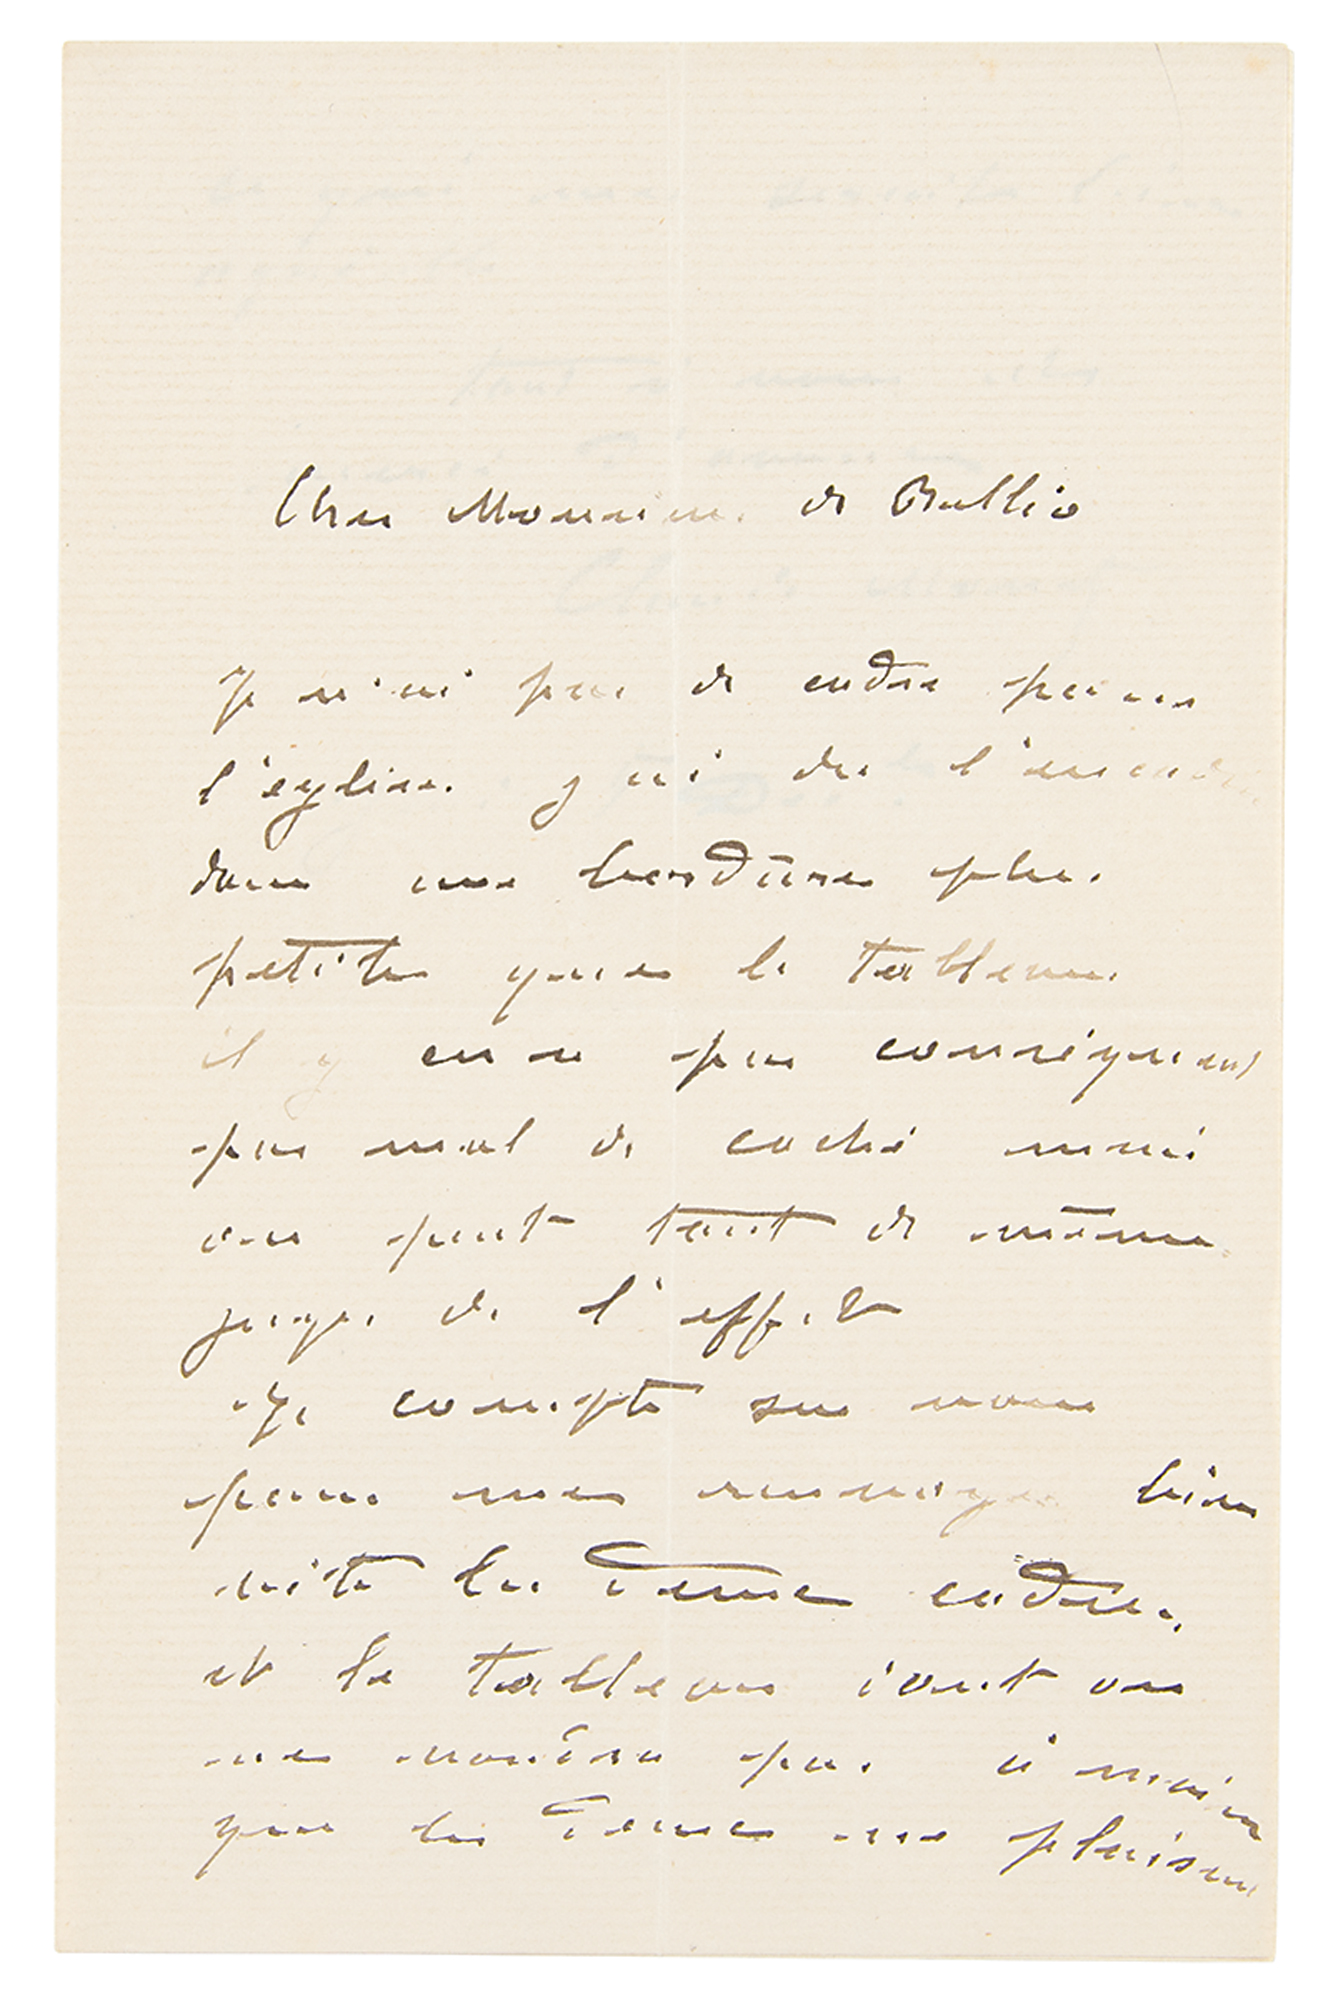 Cher Monsieur de Bellio
Je n'ai pas de cadre pour
l'eglise. j'ai du l'encadrer
dans une bordure plus
petite que le tableau.
il y en a par consequent
pas mal de caché mais
on peut tout de même
juger de l'effet
Je compte sur vous
pour me renvoyer bien
vite les deux cadres
et le tableau dont on
ne voudra pas à moins
que les deux ne plaisent